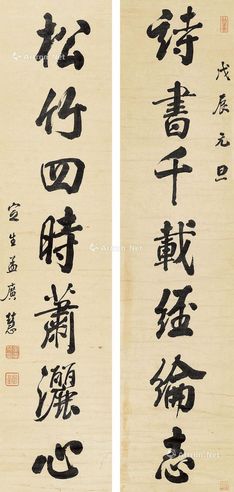 戊辰元旦
詩書千載經綸志
松竹四時蕭灑心
宣生孟廣慧